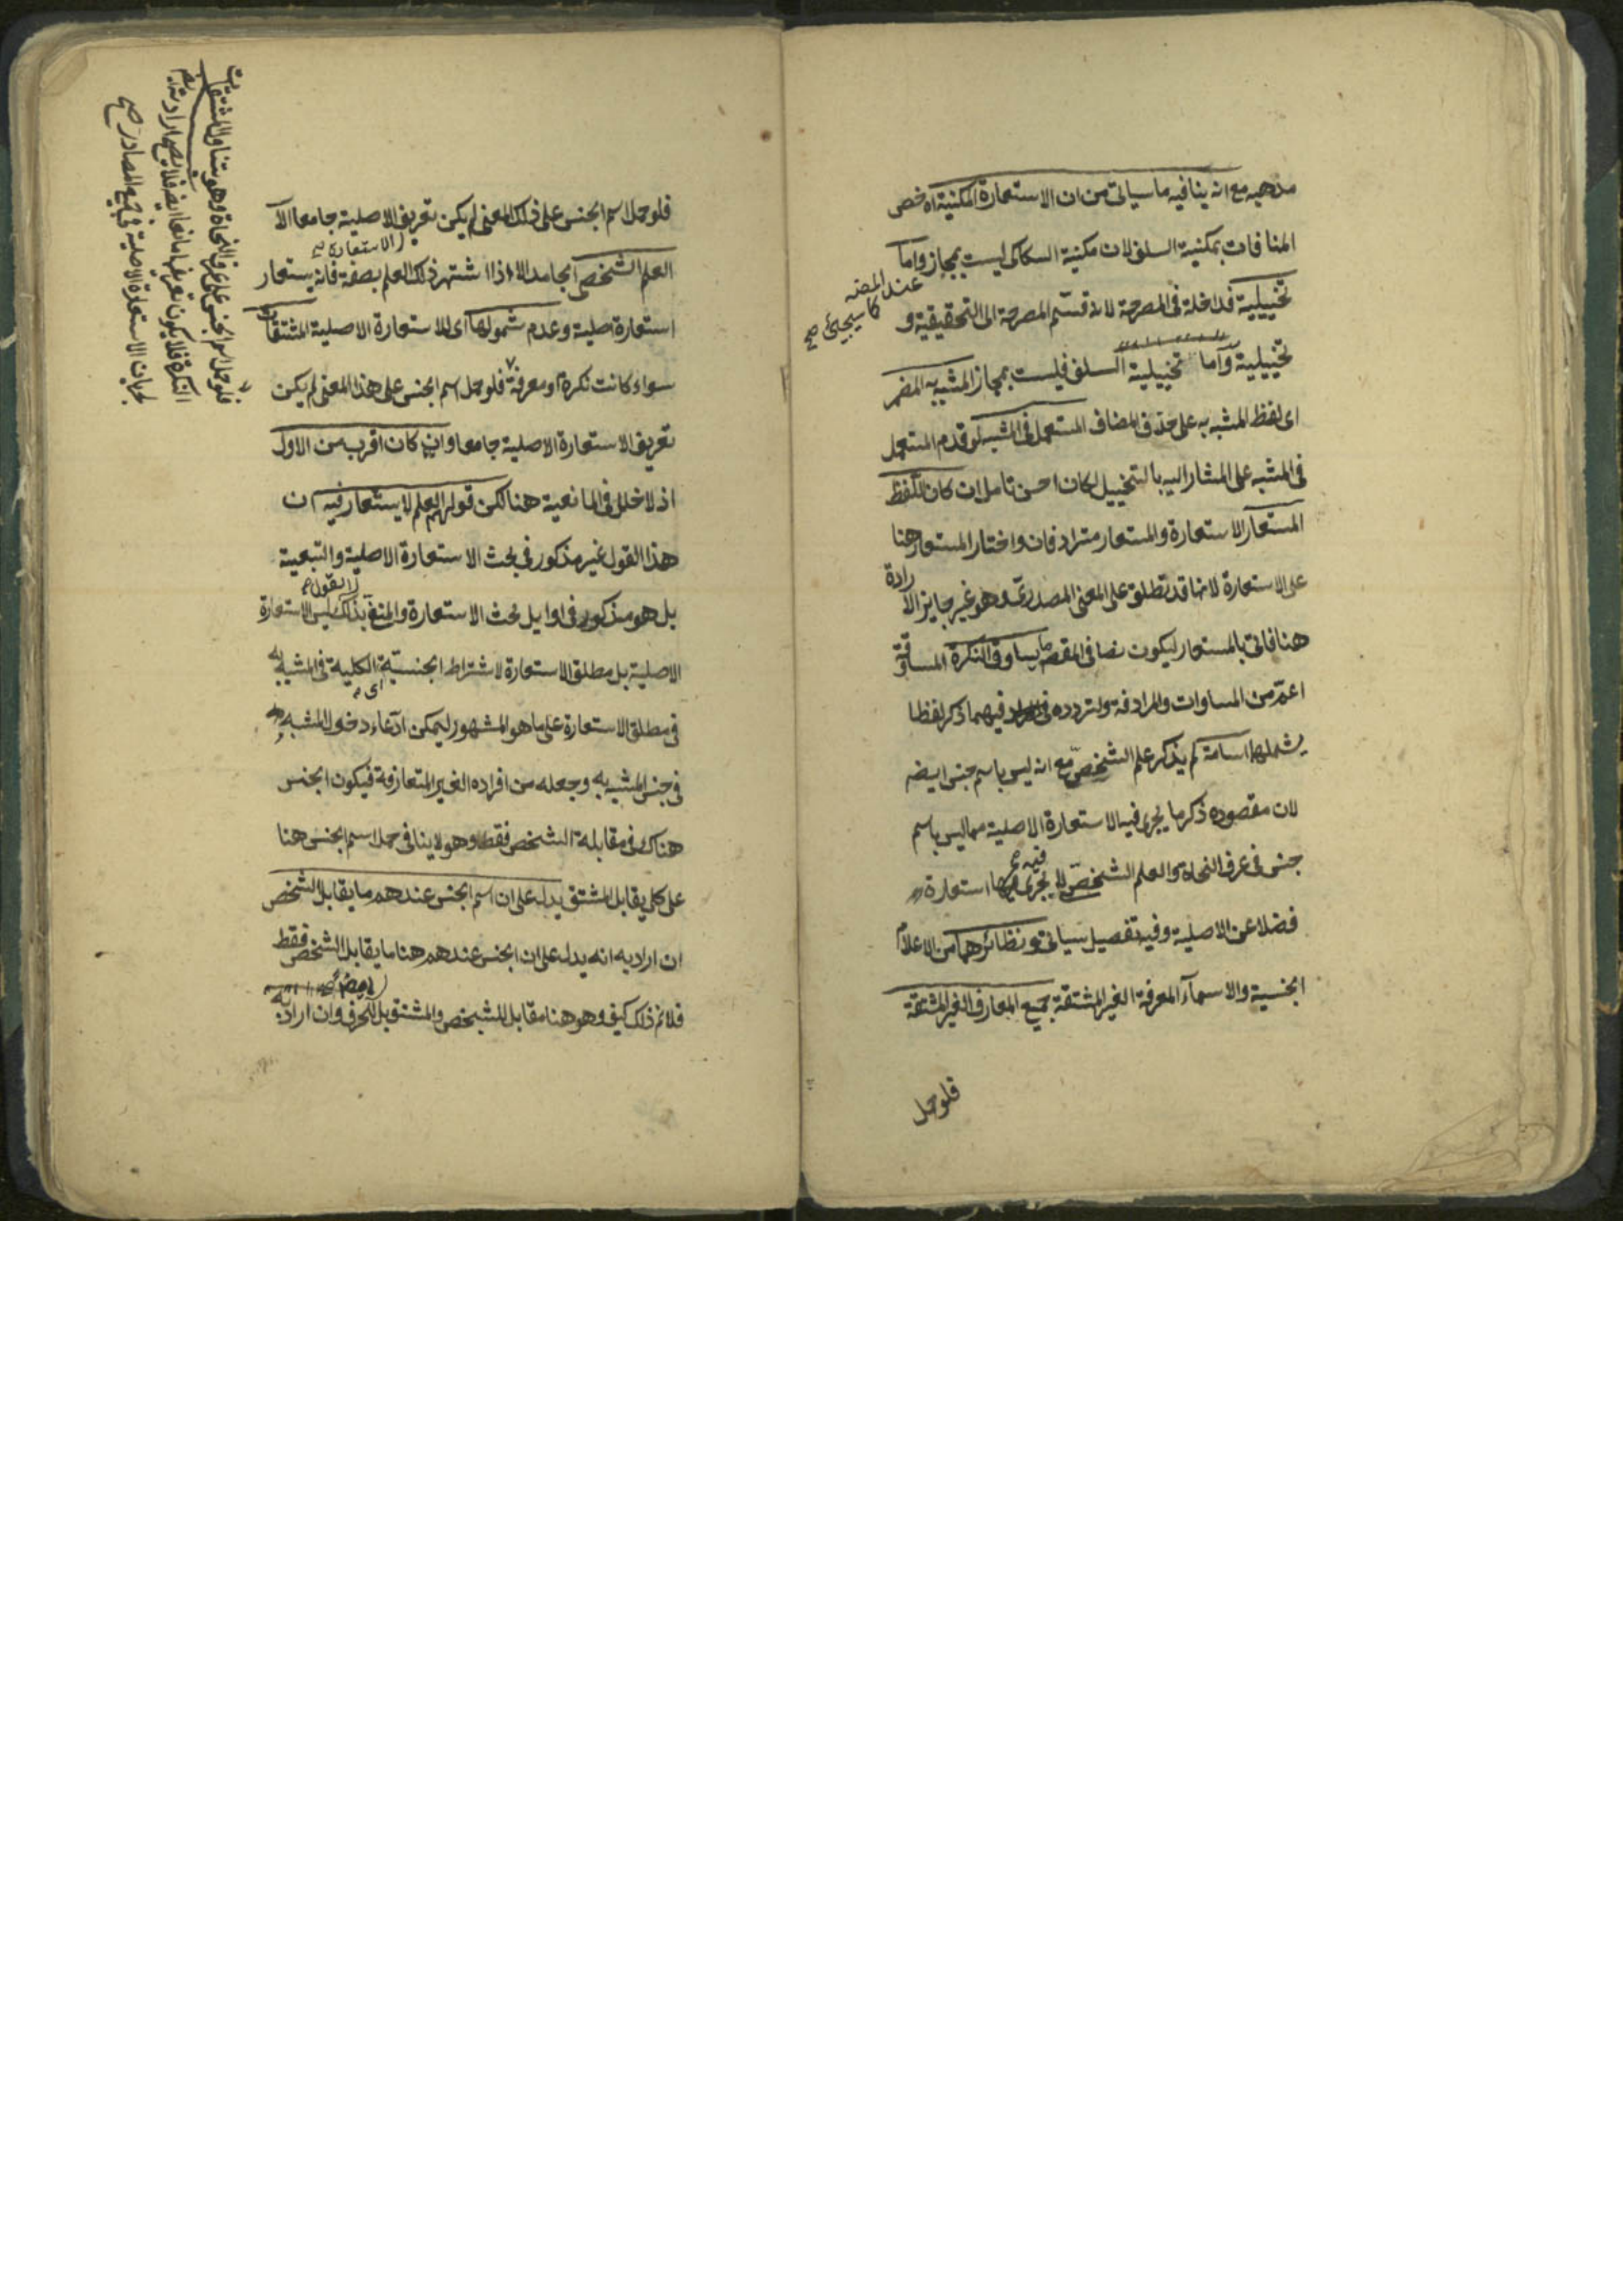 مذهبه مع انه ينافيه ما سياتى من ان الاستعارة المكنية اه خص
المنافات بمكنية السلف لان مكنية السكاكى ليست بمجاز واما
تخييلية فداخلة فى المصرحة لانه قسّم المصرحة الى التحقيقية و
عند المصنه
كما سيجئ صح
تخييلية واما تخييلية السلف فليست بمجاز المشبه به المضمر
اى لفظ المشبه به على حذف المضاف المستعمل فى المشبه لو قدم المستعمل
فى المشبه على المشار اليه بالتخييل لكان احسن تامل ان كان اللفظ
المستعار الاستعارة والمستعار مترادفان واختار المستعار هنا
على الاستعارة لانها قد تطلق على المعنى المصدرى وهو غير جايز الارادة
هنا فاتى بالمستعار ليكون نصا فى المقصه ما يساوق النكرة المساوقة
اعم من المساوات والمرادفة ولتردده فيهما ذكر لفظا
يشملهما اسامة لم يذكر علم الشخص مع انه ليس باسم جنس ايضه
لان مقصوده ذكر ما يجرى فيه الاستعارة الاصلية مما ليس باسم
جنس فى عرف النحاة والعلم الشخصى لا يجرى فيه استعارة
فضلا عن الاصلية وفيه تفصيل سياتى ونظائرهما من الاعلام
الجنسية والاسماء المعرفة الغير المشتقة جميع المعارف الغير المشتقة
فلو حمل
فلو حمل اسم الجنس على ذلك المعنى لم يكن تعريف الاصلية جامعا الا
الاستعارة
العلم الشخصى الجامد الا اذا اشتهر ذلك العلم بصفة فانه يستعار
استعارة اصلية وعدم شمولها اى للاستعارة الاصلية المشتقات
سواء كانت نكرة او معرفة فلو حمل اسم الجنس على هذا المعنى لم يكن
تعريف الاستعارة الاصلية جامعا وان كان اقرب من الاول
اذ لا خلل فى المانعية هنا لكن قولهم العلم لا يستعار فيه ان
هذا القول غير مذكور فى بحث الاستعارة الاصلية والتبعية
القول
بل هو مذكور فى اوايل بحث الاستعارة والمنفى بذلك ليس الاستعارة
الاصلية بل مطلق الاستعارة لاشتراط الجنسية الكلية فى المشبه به
اى
فى مطلق الاستعارة على ما هو المشهور ليمكن ادّعاء دخول المشبه
فى جنس المشبه به وجعله من افراده الغير المتعارفة فيكون الجنس
هناك فى مقابلة الشخص فقط وهو لا ينافى حمل اسم الجنس هنا
على كلى يقابل المشتق يدل على ان اسم الجنس عندهم ما يقابل الشخص
ان اراد به انه يدل على ان الجنس عندهم هنا ما يقابل الشخص فقط
فلانم ذلك كيف وهو هنا مقابل للشخص والمشتق بل للحرف وان اراد به
فلو حمل اسم الجنس على عرف النحاة وهو متناول المشتقات
النكرة فلا يكون تعريفها مانعا ايضه فلا يصح ارادته
لجريان الاستعارة الاصلية فى جميع المصادر صح